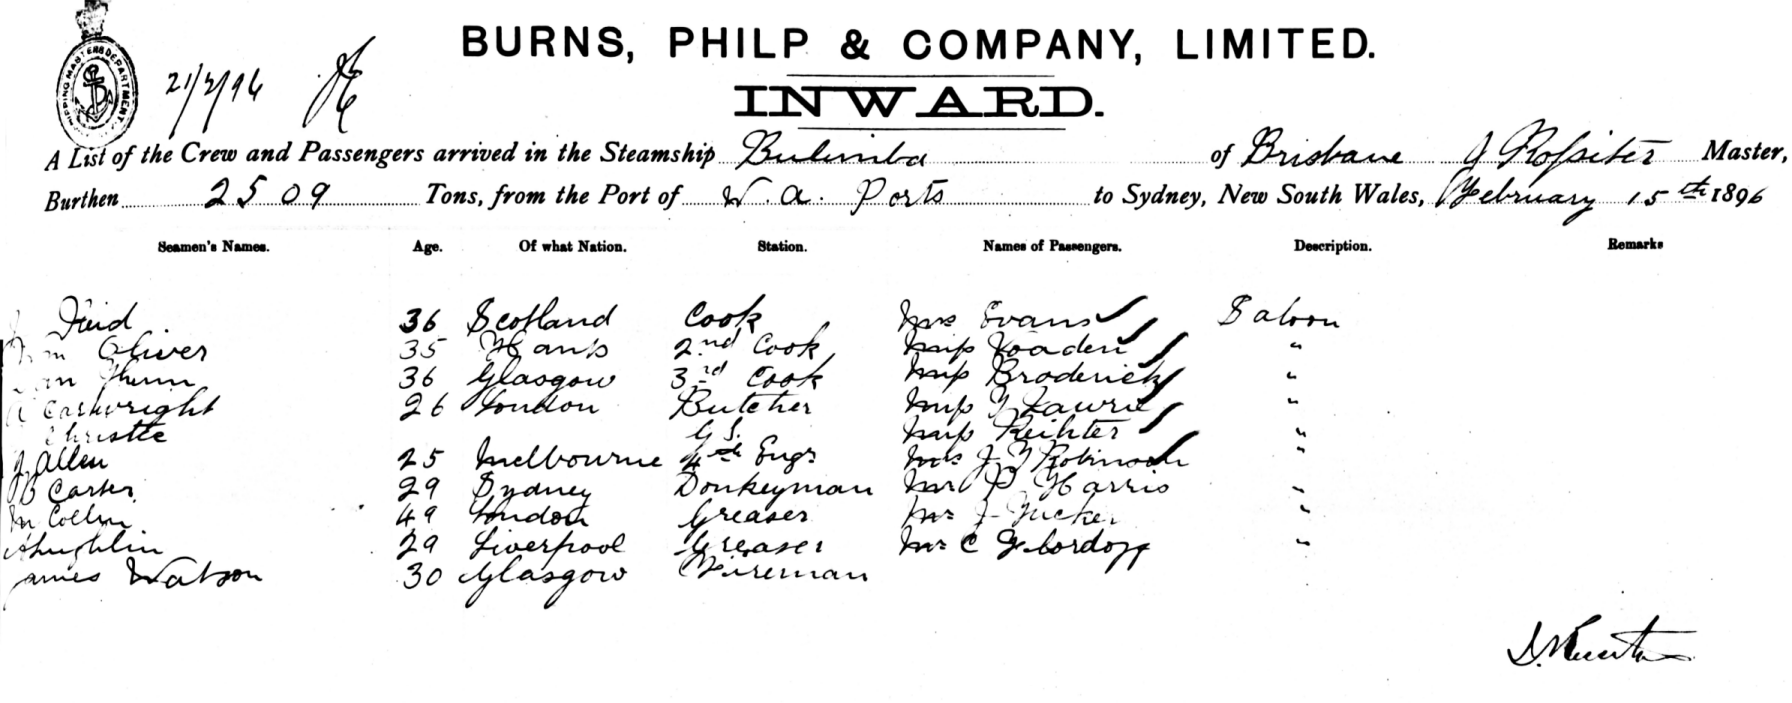 BURNS, PHILP & COMPANY, LIMITED.
SHIPPING MASTERS DEPARTMENT.
21/2/96
INWARD.
A List of the Crew and Passengers arrived in the Steamship Bulimba of Brisbane J Rossiter Master,
Burthen 2509 Tons, from the Port of W. A. Ports to Sydney, New South Wales, February 15th 1896
Seamen's Names. Age. Of what Nation. Station. Names of Passengers. Description. Remarks
36 Scotland Cook Mrs Evans Saloon
Oliver 35 Hants 2nd Cook Miss Voaden "
36 Glasgow 3rd Cook Miss Broderick "
Cartwright 26 London Butcher Miss Lawrie "
Christie G S. Miss Reihter "
J Allen 25 Melbourne 4th Engr Mrs J Robinson "
Carter 29 Sydney Donkeyman Mr P Harris "
M Collin 49 London Greaser Mr J Tucker "
29 Liverpool Greaser Mr C "
James Watson 30 Glasgow Fireman